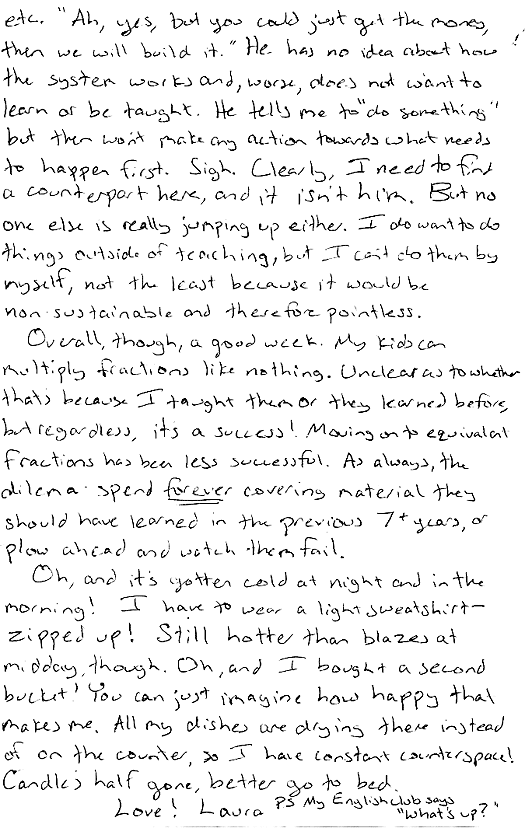 etc. "Ah, yes, but you could just get the money,
then we will build it." He has no idea about how !
the system works and, worse, does not want to
learn or be taught. He tells me to "do something"
but then won't make any action towards what needs
to happen first. Sigh. Clearly, I need to find
a counterpart here, and it isn't him. But no
one else is really jumping up either. I do want to do
things outside of teaching, but I can't do them by
myself, not the least because it would be
non-sustainable and therefore pointless.
Overall, though, a good week. My kids can
multiply fractions like nothing. Unclear as to whether
that's because I taught them or they learned before,
but regardless, it's a success! Moving on to equivalent
fractions has been less successful. As always, the
dilema - spend forever covering material they
should have learned in the previous 7+ years, or
plow ahead and watch them fail.
Oh, and it's gotten cold at night and in the
morning! I have to wear a light sweatshirt—
zipped up! Still hotter than blazes at
midday, though. Oh, and I bought a second
bucket! You can just imagine how happy that
makes me. All my dishes are drying there instead
of on the counter, so I have constant counterspace!
Candle's half gone, better go to bed.
Love! Laura PS My English club says
"What's up?"